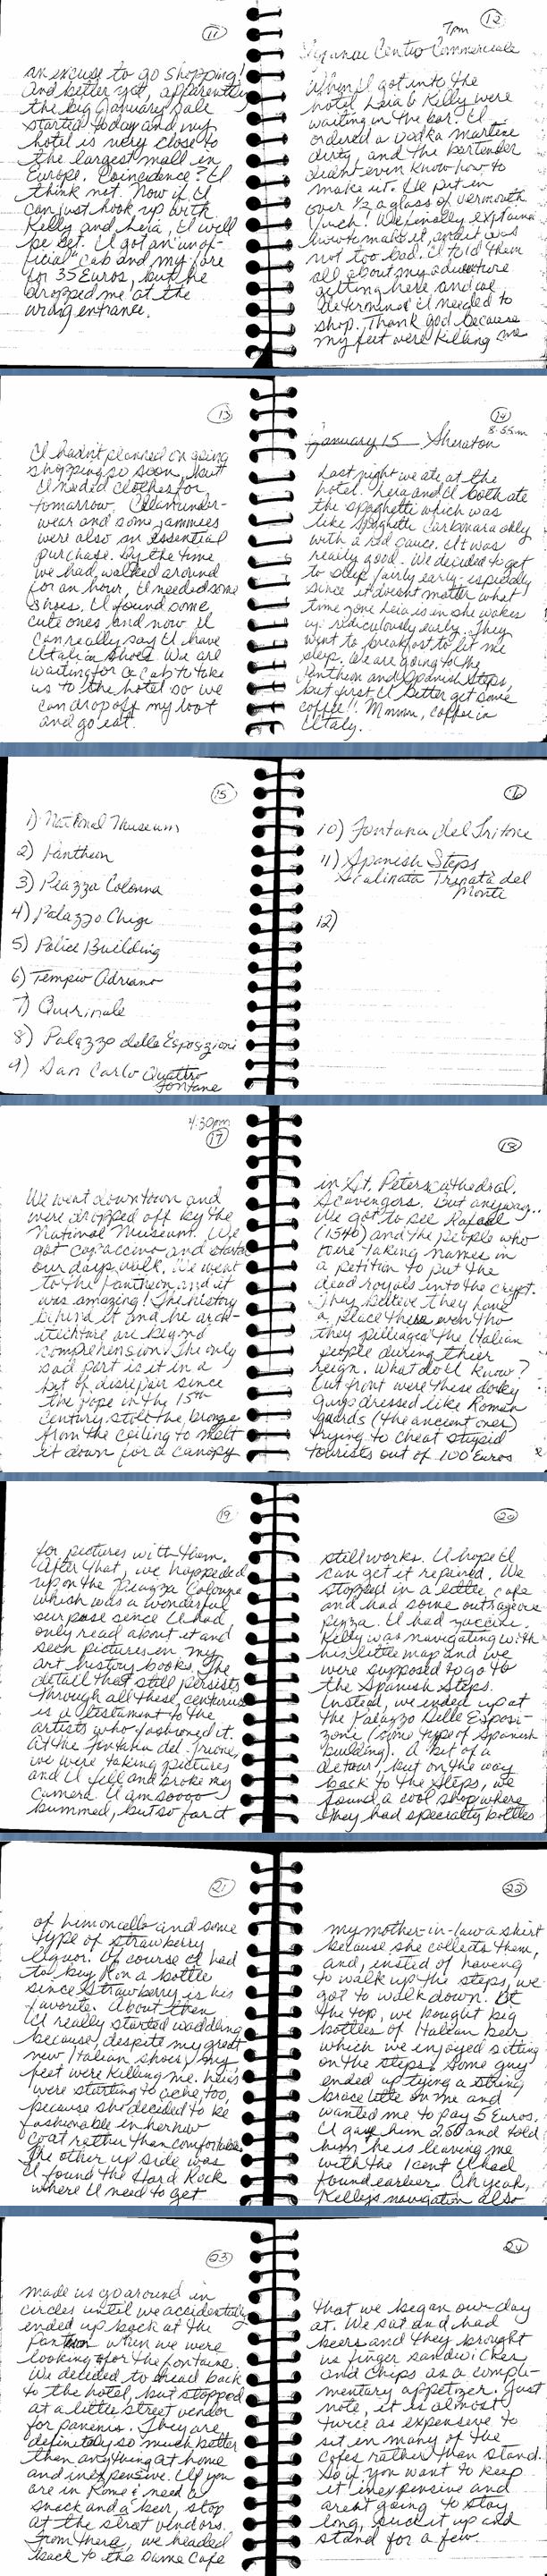 11
an excuse to go shopping!
And better yet, apparently
the big January sale
started today and my
hotel is very close to
the largest mall in
Europe. Coincidence? I
think not. Now if I
can just hook up with
Kelly and Leia, I will
be set. I got an "unof-
ficial" cab and my fare
for 35 Euros, but he
dropped me at the
wrong entrance.
7pm
12
Centro Commerciale
When I got into the
hotel Leia & Kelly were
waiting in the bar. I
ordered a vodka martini
dirty, and the bartender
didn't even know how to
make it. He put in
over 1/2 a glass of vermouth
Yuck! We finally explained
how to make it, and it was
not too bad. I told them
all about my adventure
getting here and we
determined I needed to
shop. Thank god because
my feet were killing me
13
I hadn't planned on going
shopping so soon, but
I needed clothes for
tomorrow. Clean under-
wear and some jammies
were also an essential
purchase. By the time
we had walked around
for an hour, I needed some
shoes. I found some
cute ones and now I
can really say I have
Italian shoes. We are
waiting for a cab to take
us to the hotel so we
can drop off my loot
and go eat.
14
8:55am
January 15 Sheraton
Last night we ate at the
hotel. Leia and I both ate
the spaghetti which was
like Spaghetti Carbonara only
with a red sauce. It was
really good. We decided to get
to sleep fairly early - especially
since it doesn't matter what
time zone Leia is in she wakes
up ridiculously early. They
went to breakfast to let me
sleep. We are going to the
Pantheon and Spanish Steps,
but first I better get some
coffee!! Mmmm, coffee in
Italy.
15
1) National Museum
2) Pantheon
3) Piazza Colonna
4) Palazzo Chigi
5) Police Building
6) Tempio Adriano
7) Quirinale
8) Palazzo delle Esposizioni
9) San Carlo Quattro
Fontane
16
10) Fontana del Tritone
11) Spanish Steps
Scalinata Trinata del
Monti
12)
4:30pm
17
We went downtown and
were dropped off by the
National Museum. We
got capaccino and started
our days walk. We went
to the Pantheon and it
was amazing! The history
behind it and he arch-
itichture are beyond
comprehension. The only
said part is it in a
bit of disrepair since
the pope in the 15th
century stole the bronze
from the ceiling to melt
it down for a canopy
18
in St. Peters cathedral.
Scavengers. But anyway..
We got to see Rafael
(1540) and the people who
were taking names in
a petition to put the
dead royals into the crypt.
They believe they have
a place there even tho
they pillaged the Italian
people during their
reign. What do I know?
Out front were these dorky
guys dressed like Roman
guards (the ancient ones)
trying to cheat stupid
tourists out of 100 Euros
19
for pictures with them.
After that, we happeded
upon the Piazza Cologne
which was a wonderful
surprise since I had
only read about it and
seen pictures in my
art history books. The
detail that still persists
through all these centuries
is a testament to the
artists who fashioned it.
At the Fontana del
we were taking pictures
and I fell and broke my
camera. I am soooo
bummed, but so far it
20
still works. I hope I
can get it repaired. We
stopped in a little cafe
and had some outrageous
pizza. I had zuccini.
Kelly was navigating with
his little map and we
were supposed to go to
the Spanish Steps.
Instead, we ended up at
the Palazzo Delle Esposi-
zoni (some type of Spanish
building). A bit of a
detour, but on the way
back to the steps, we
found a cool shop where
they had specialty bottles
21
of limoncello and some
type of strawberry
liquor. Of course I had
to buy Ron a bottle
since strawberry is his
favorite. About then
I really started waddling
because, despite my great
new Italian shoes, my
feet were killing me. Leia's
were starting to ache too,
because she decided to be
fashionable in her new
coat rather than comfortable.
The other up side was
I found the Hard Rock
where I need to get
22
my mother-in-law a shirt
because she collects them,
and, insted of having
to walk up the steps, we
got to walk down. At
the top, we bought big
bottles of Italian beer
which we enjoyed sitting
on the steps. Some guy
ended up tying a string
bracelette on me and
wanted me to pay 5 Euros.
I gave him 2.00 and told
him he is leaving me
with the 1 cent I had
found earlier. Oh yeah,
Kellys navigation also
23
made us go around in
circles until we accidentally
ended up back at the
Pantheon when we were
looking for the fontaine.
We decided to head back
to the hotel, but stopped
at a little street vendor
for paninis. They are
definitely so much better
then anything at home
and inexpensive. If you
are in Rome & need a
snack and a beer, stop
at the street vendors.
From there, we headed
back to the same cafe
24
that we began our day
at. We sat and had
beers and they brought
us finger sandwiches
and chips as a compli-
mentary appetizer. Just
note, it is almost
twice as expensive to
sit in many of the
cafes rather than stand.
So if you want to keep
it inexpensive and
arent going to stay
long, suck it up and
stand for a few.